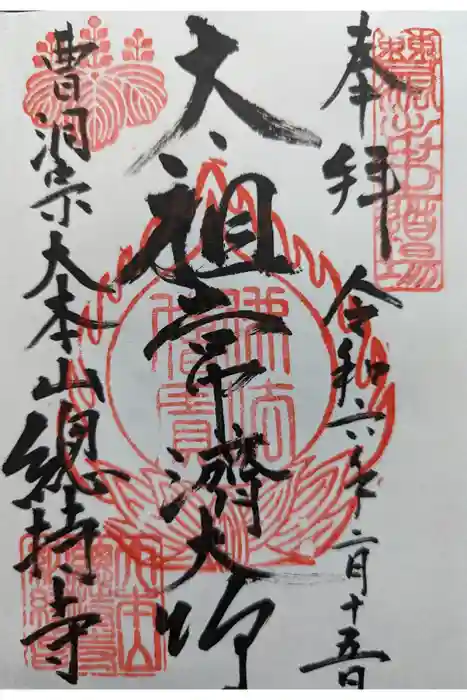 奉拝
令和六年二月十五日
太祖常濟大師
佛法
僧寶
曹洞宗大本山總持寺